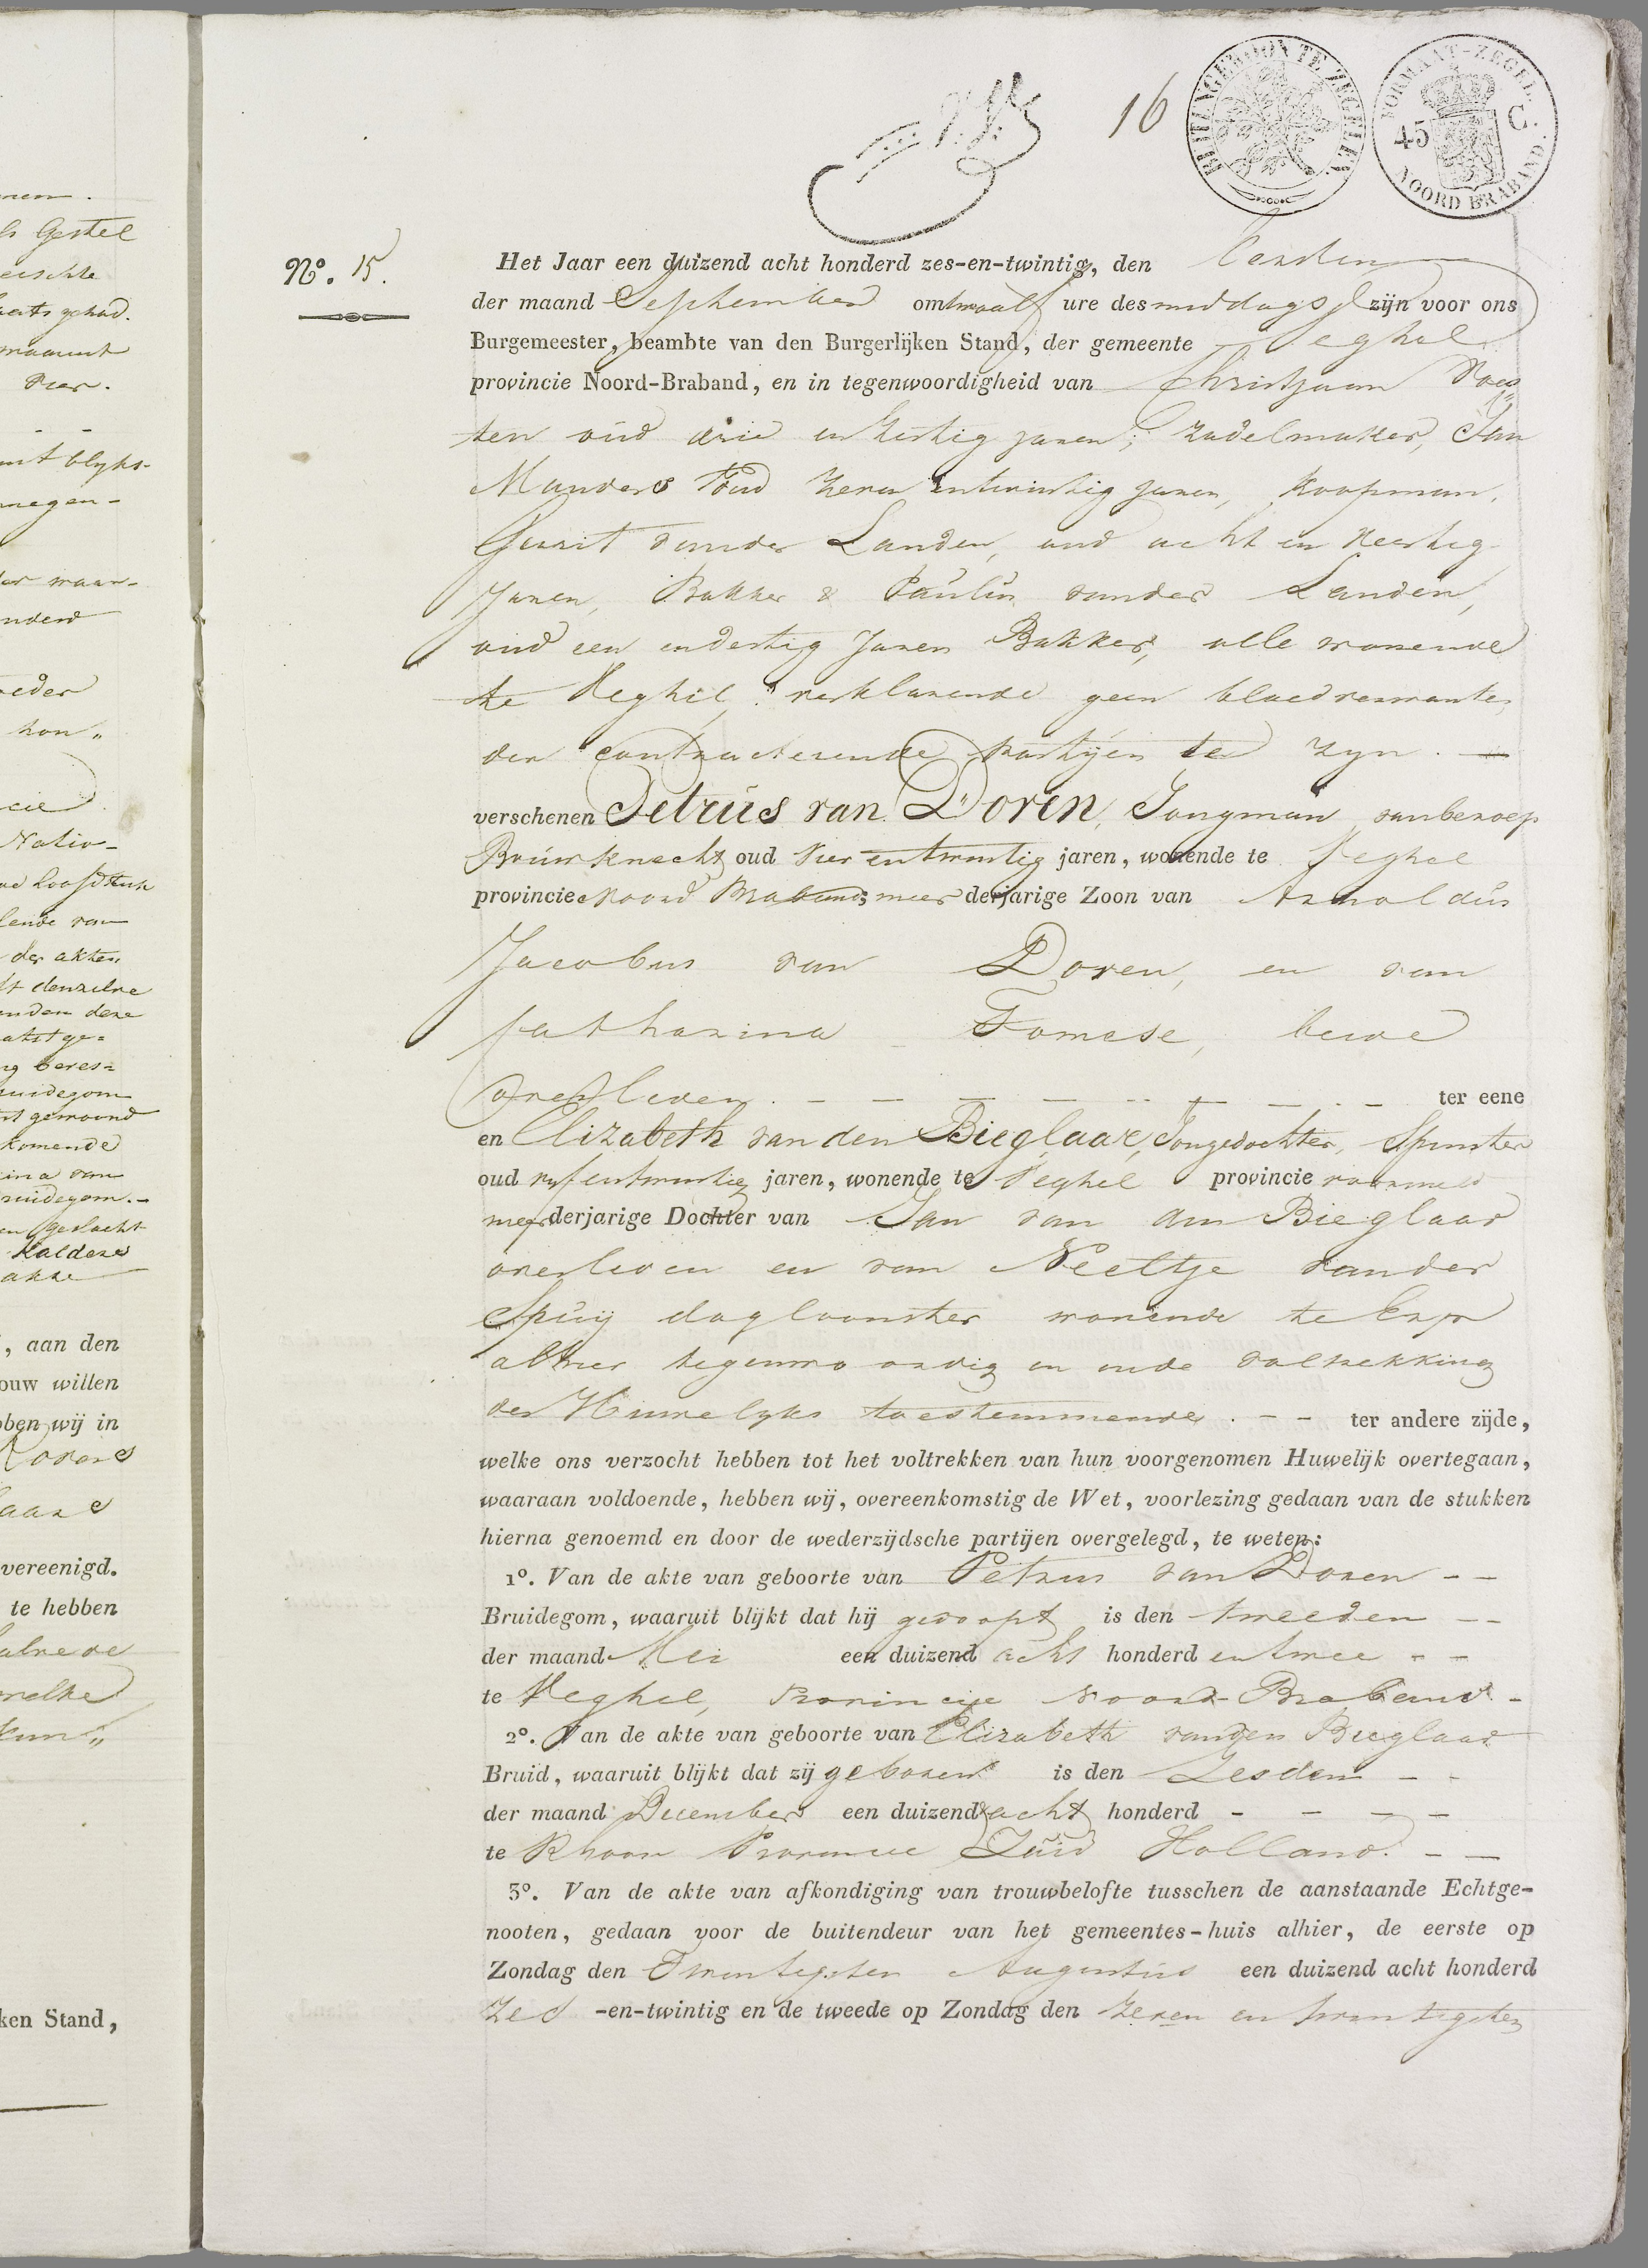 16
BUITENGEWOON TE ZEGELEN
FORMAAT-ZEGEL.
45 C.
NOORD BRABAND.
N°. 15.
Het Jaar een duizend acht honderd zes-en-twintig, den Eersten
der maand September om twaalf ure des middags zijn voor ons
Burgemeester, beambte van den Burgerlijken Stand, der gemeente Veghel
provincie Noord-Braband, en in tegenwoordigheid van Christjaan
ten oud drie en jaren, zadelmaker, Jan
Manders oud zeven entwintig jaren, koopman,
Gerrit vander Landen, oud acht en veertig
Jaren, Bakker & Paulus vander Landen,
oud een endertig Jaren Bakker, alle wonende
te Veghel, verklarende geen bloedverwanten
der contracterende partijen te zyn. —
verschenen Petrus van Doren, Jongman van beroep
Bouwknecht oud vier entwintig jaren, wonende te Veghel
provincie Noord Braband; meer derjarige Zoon van Arnoldus
Jacobus van Doren, en van
Catharina Fomese, beide
overleden. — — — — — — — ter eene
en Elizabeth van den Bieglaar, Jongedochter, Spinster
oud vyf entwintig jaren, wonende te Veghel provincie voormeld
meerderjarige Dochter van Jan van den Bieglaar
overleden en van Neeltje vander
Spuij dagloonster wonende te Erp
alhier tegenwoordig en in de voltrekking
des Huwelyks toestemmende. - - ter andere zijde,
welke ons verzocht hebben tot het voltrekken van hun voorgenomen Huwelijk overtegaan,
waaraan voldoende, hebben wij, overeenkomstig de Wet, voorlezing gedaan van de stukken
hierna genoemd en door de wederzijdsche partijen overgelegd, te weten:
1°. Van de akte van geboorte van Petrus van Doren - -
Bruidegom, waaruit blijkt dat hij gedoopt is den tweeden - -
der maand Mei een duizend acht honderd en twee - -
te Veghel, Provincije Noord-Braband. -
2°. Van de akte van geboorte van Elizabeth vanden Bieglaar
Bruid, waaruit blijkt dat zij geboren is den Zesden - -
der maand December een duizend acht honderd - - - -
te Rhoon Provincie Zuid Holland. - -
3°. Van de akte van afkondiging van trouwbelofte tusschen de aanstaande Echtge-
nooten, gedaan voor de buitendeur van het gemeentes-huis alhier, de eerste op
Zondag den Twintigsten Augustus een duizend acht honderd
Zes -en-twintig en de tweede op Zondag den zeven en twintigsten